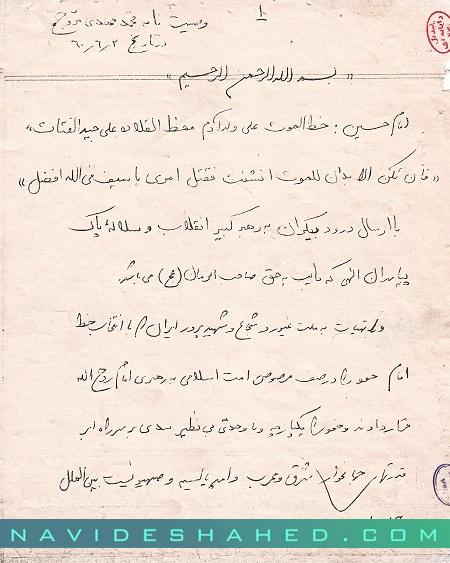 ۱
وصیت نامه محمد مهدی مروج
در تاریخ ۶۰/۶/۲
« بسم الله الرحمن الرحیم »
امام حسین: خط الموت علی ولد آدم مخط القلاده علی جید الفتات،
«فان تکن الابدان للموت انشئت فقتل امری باسیف فی الله افضل»
با ارسال درود بیکران به رهبر کبیر انقلاب و سلاله پاک
پیامبران الهی که نایب به حق صاحب الزمان (عج) می باشد
و تهنیات به ملت غیور و شجاع و شهیدپرور ایران که با انتخاب خط
امام خود را در صف مرصوص امت اسلامی به رهبری امام روح الله
قرار دادند و خود را یکپارچه و با وحدتی بی نظیر سدی بر سر راه ابر
قدرتهای جهانخوار شرق و غرب و امپریالیسم و صهیونیست بین الملل
NAVIDESHAHED.COM